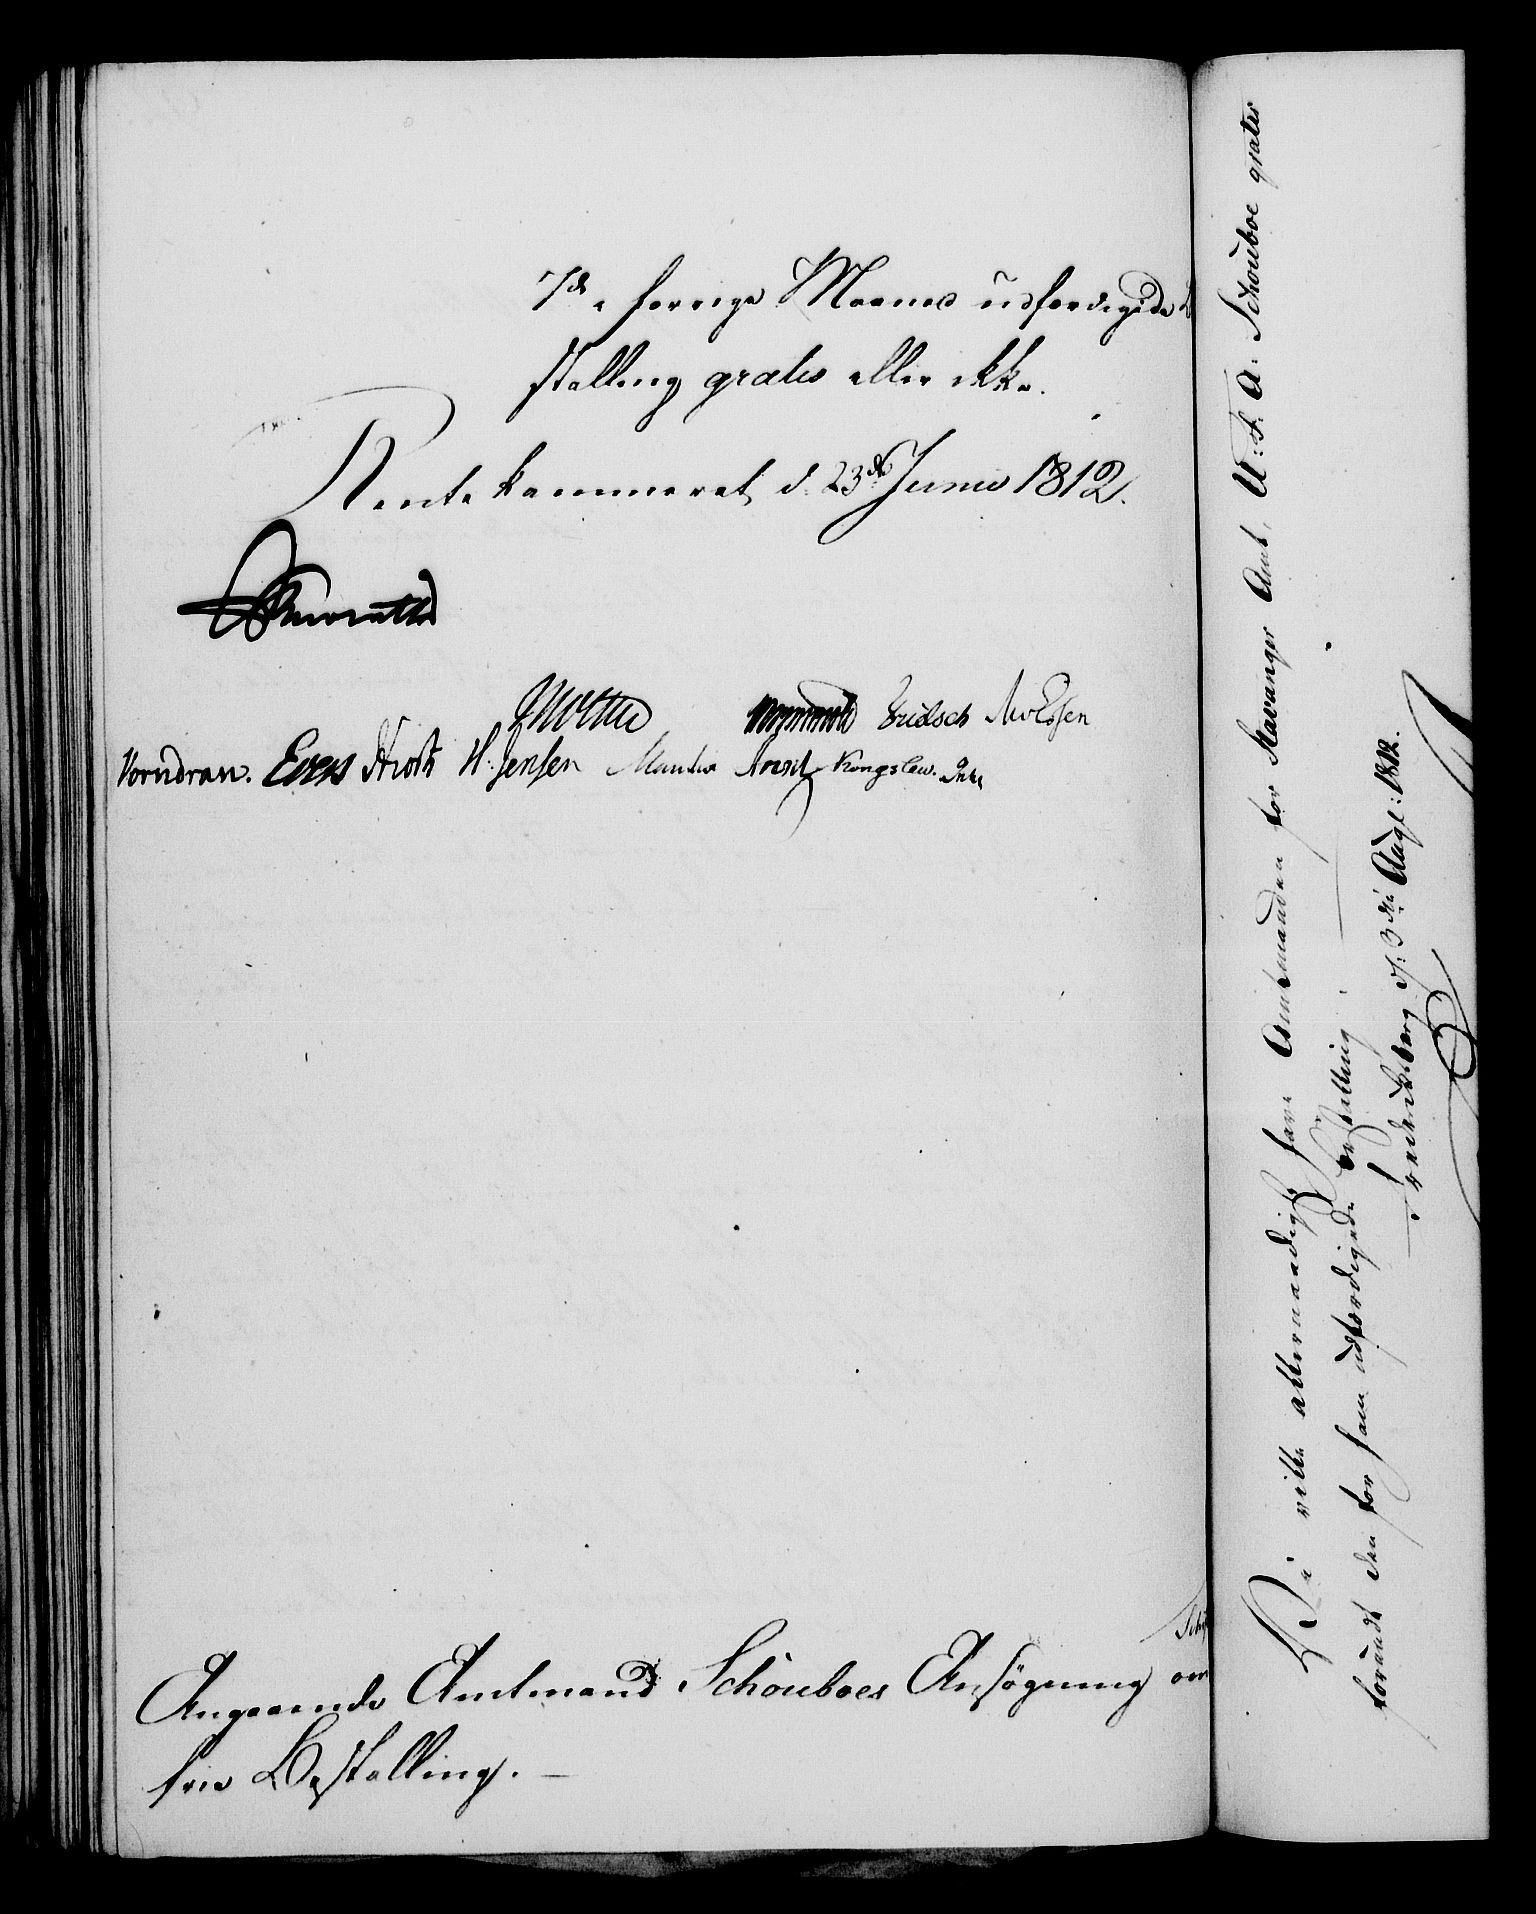 7de forrige Maaned udfærdigede Be
stalling gratis eller ikke.
Rentekammeret d: 23de Junii 1812.
Vorndran. Evers H: Jensen Kongslew.
Angaaende Amtmand Schouboes Ansøgning om
frie Bestalling. —
Vi ville allernaadigst have Amtmanden for Stavanger Amt, U: F: A: Schouboe gratis
forundt den for ham udfærdigede Bestalling.
Frederiksberg d: 3die Augt: 1812.